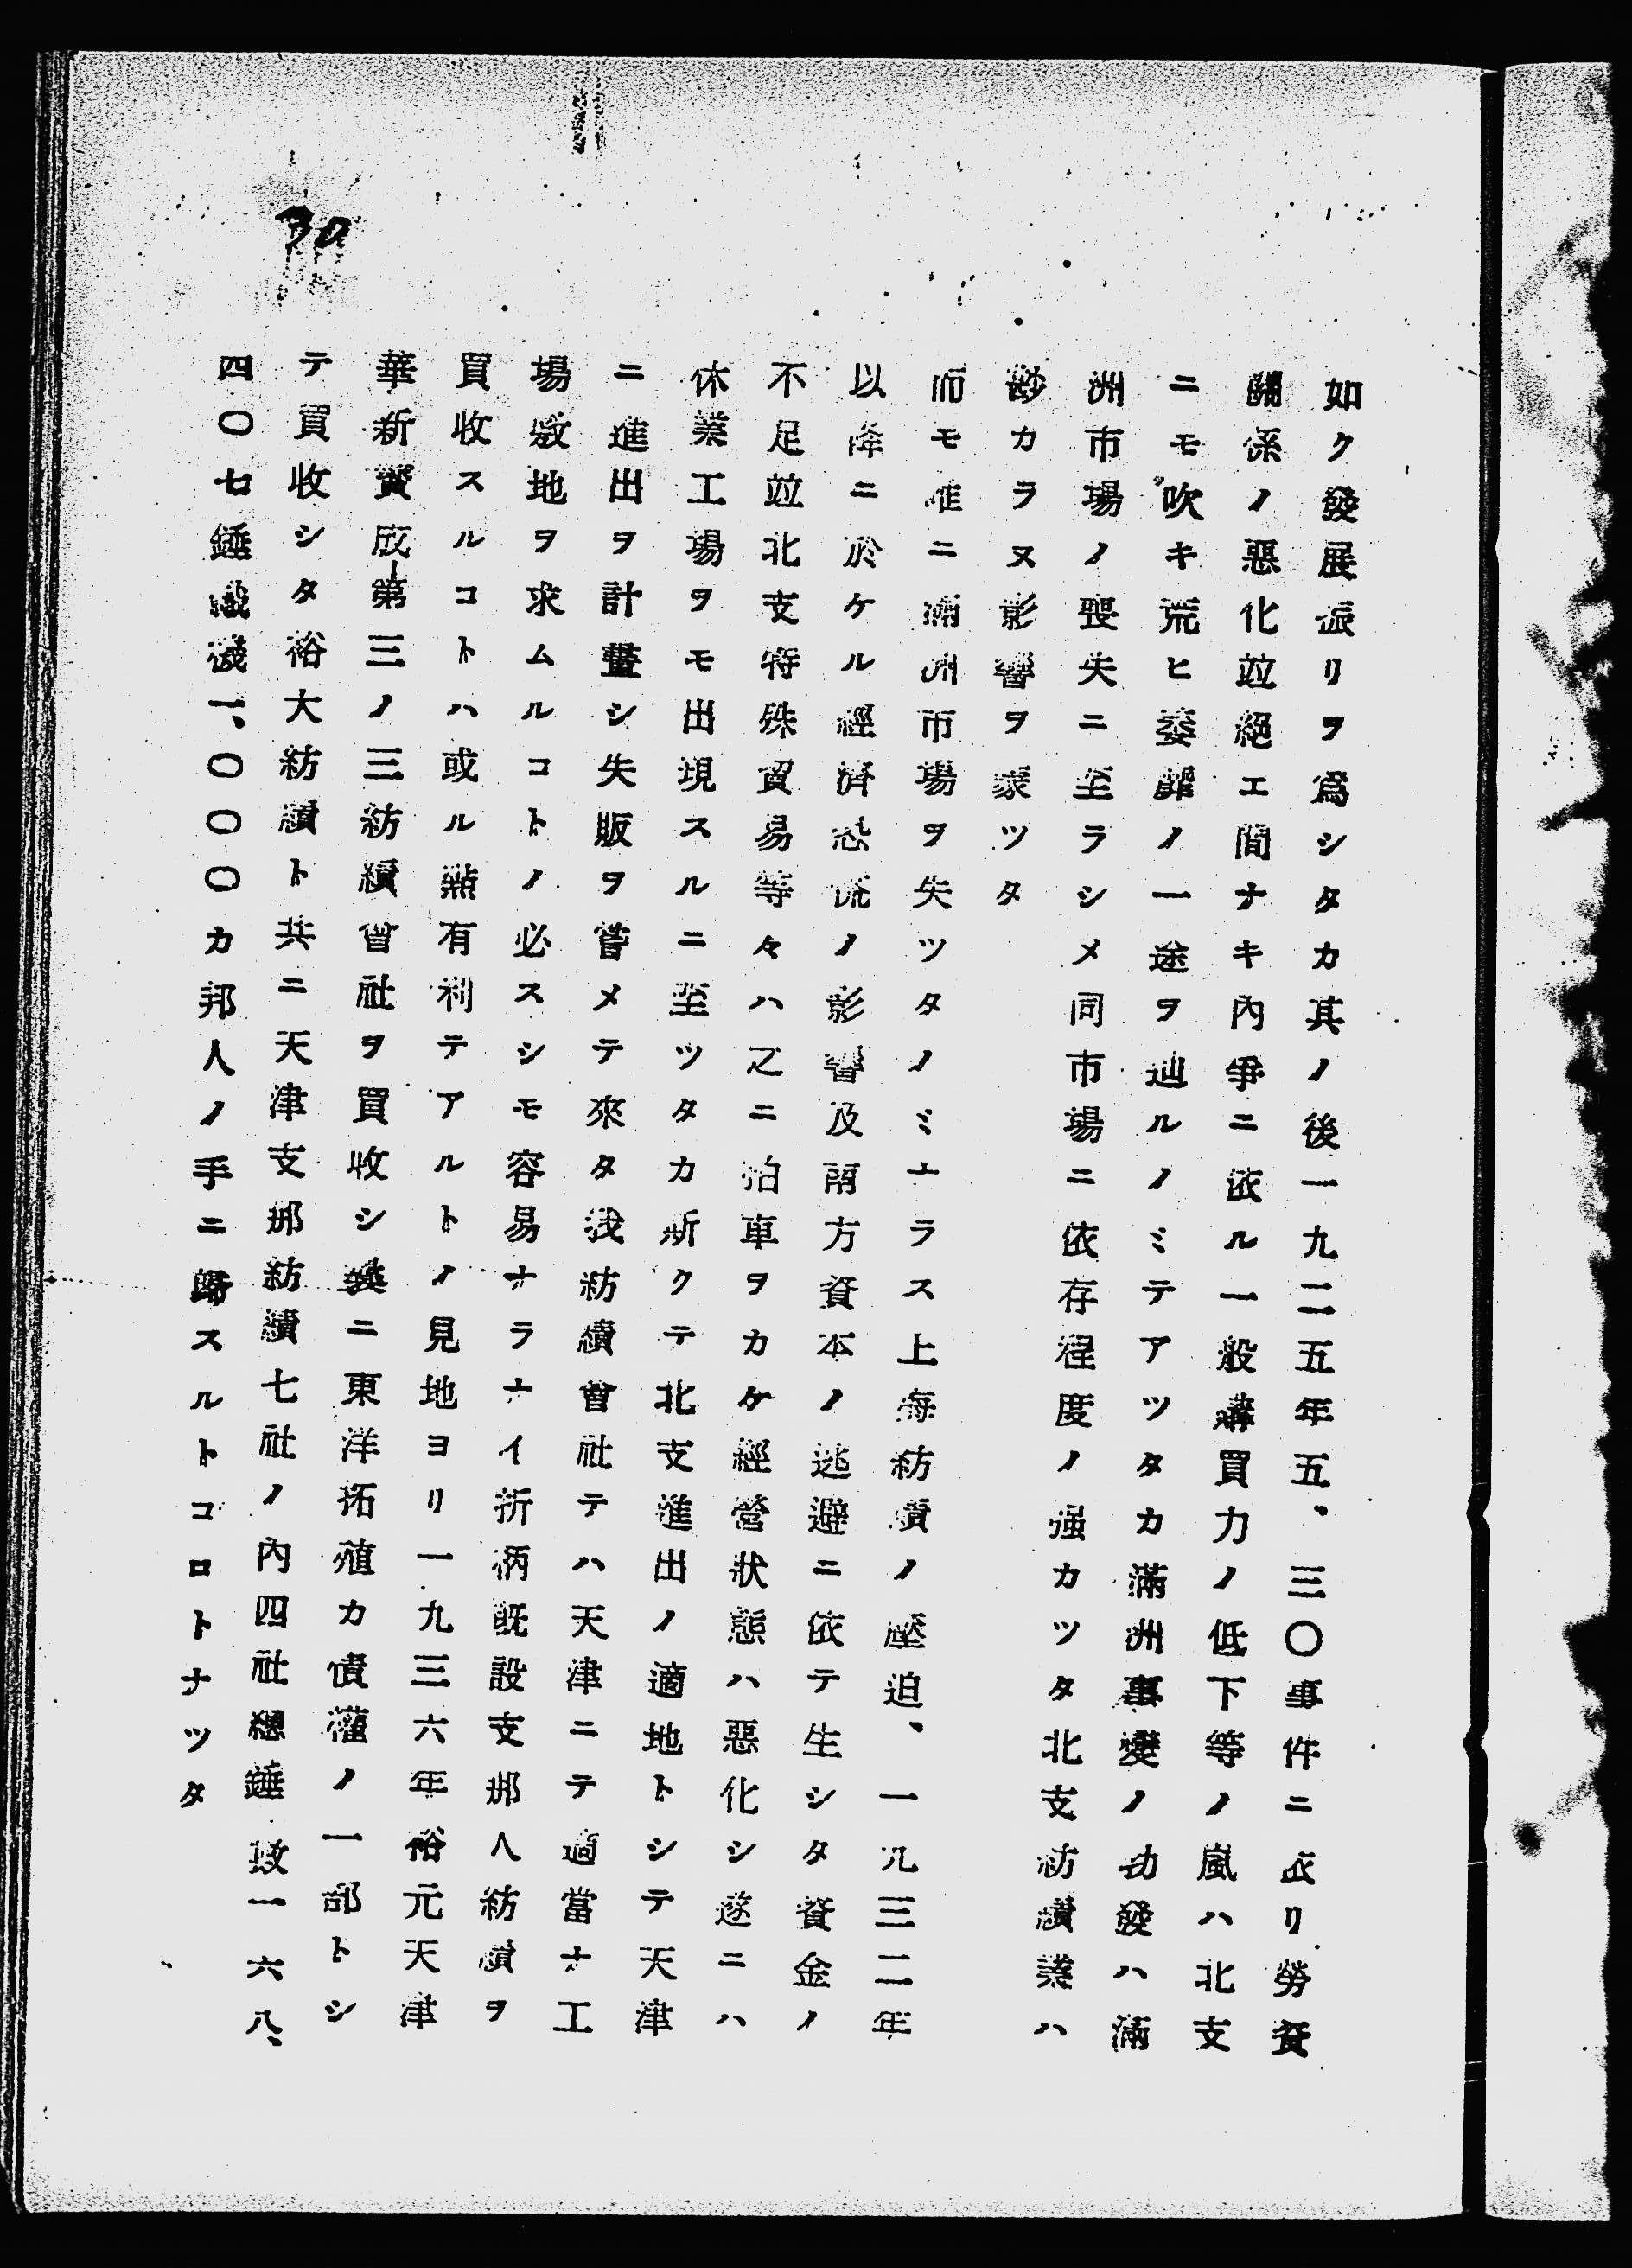 30
如ク發展振リヲ爲シタカ其ノ後一九二五年五、三〇事件ニ依リ勞資
關係ノ惡化竝絕エ間ナキ內爭ニ依ル一般購買力ノ低下等ノ嵐ハ北支
ニモ吹キ荒ヒ萎靡ノ一途ヲ辿ルノミテアツタカ滿洲事變ノ勃發ハ滿
洲市場ノ喪失ニ至ラシメ同市場ニ依存程度ノ强カツタ北支紡績業ハ
尠カラヌ影響ヲ蒙ツタ
而モ啻ニ滿洲市場ヲ失ツタノミナラス上海紡績ノ壓迫、一九三二年
以降ニ於ケル經濟恐慌ノ影響及南方資本ノ逃避ニ依テ生シタ資金ノ
不足竝北支特殊貿易等々ハ之ニ拍車ヲカケ經營狀態ハ惡化シ遂ニハ
休業工場ヲモ出現スルニ至ツタカ斯クテ北支進出ノ適地トシテ天津
ニ進出ヲ計畫シ失販ヲ嘗メテ來タ我紡績會社テハ天津ニテ適當ナ工
場敷地ヲ求ムルコトノ必スシモ容易ナラナイ折柄旣設支那人紡績ヲ
買收スルコトハ或ル點有利テアルトノ見地ヨリ一九三六年裕元天津
華新寶成第三ノ三紡績會社ヲ買收シ更ニ東洋拓殖カ債權ノ一部トシ
テ買收シタ裕大紡績ト共ニ天津支那紡績七社ノ內四社總錘數一六八、
四〇七錘織機一、〇〇〇カ邦人ノ手ニ歸スルトコロトナツタ